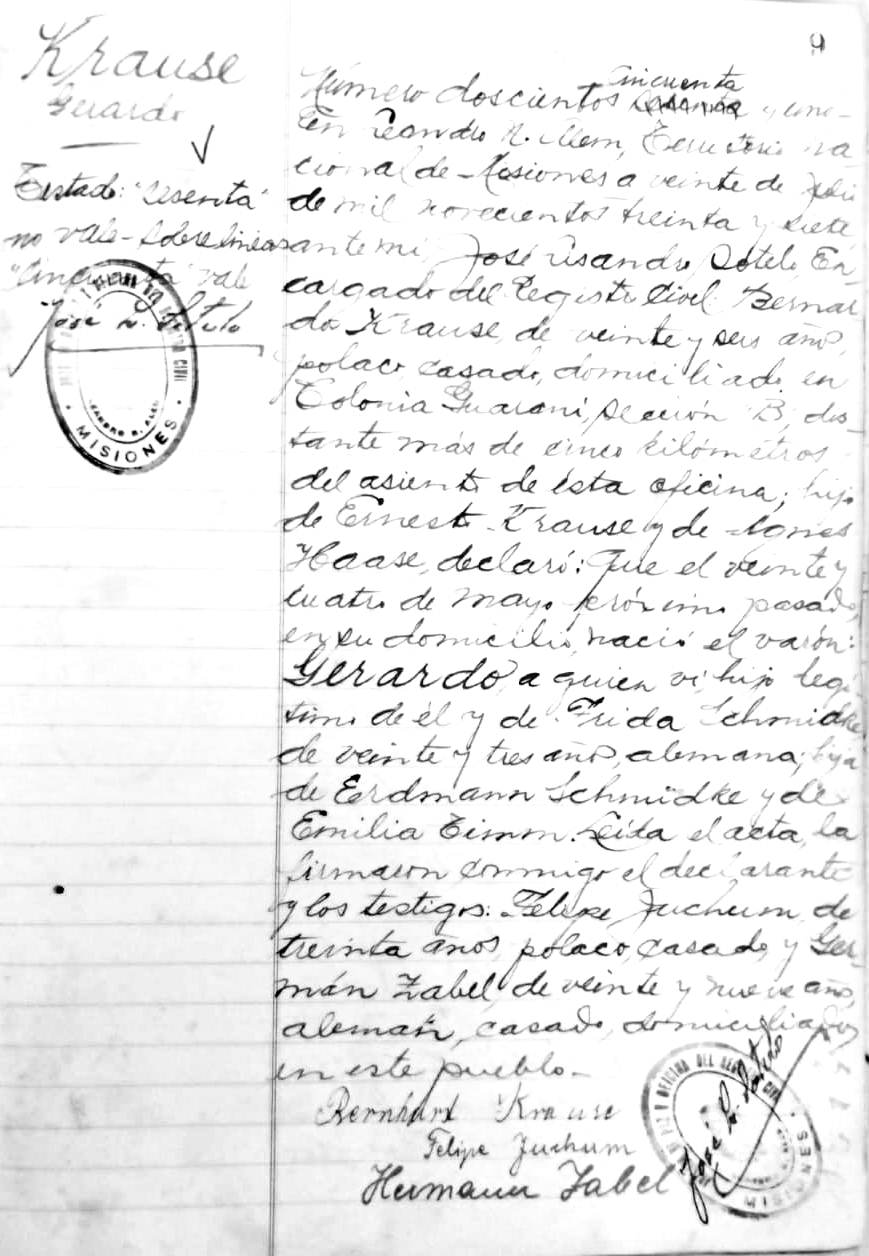 9
Krause
Gerardo
Testado: "sesenta"
no vale - sobre lineas
"Cincuenta" vale
José L. Sotelo
MISIONES
Cincuenta
Número doscientos sesenta y uno-
En Leandro N. Alem, Territorio na
cional de Misiones a veinte de
de mil novecientos treinta y siete
ante mi, José Lisandro Sotelo En-
cargado del Registro Civil Bernar
do Krause, de veinte y seis años,
polaco, casado, domiciliado en
Colonia Guaraní, sección B, dis-
tante más de cinco kilómetros
del asiento de ésta oficina; hijo
de Ernesto Krause y de Agnes
Haase, declaró: Que el veinte y
cuatro de mayo próximo pasado,
en su domicilio, nació el varón:
Gerardo, a quien ví, hijo legí
timo de él y de Frida Schmidke
de veinte y tres años, alemana; hija
de Erdmann Schmidke y de
Emilia Timm. Leída el acta, la
firmaron conmigo el declarante
y los testigos: Felipe Juchum, de
treinta años, polaco, casado, y Ger-
mán Zabel, de veinte y nueve años,
alemán, casado, domiciliados
en este pueblo.-
Bernhart Krause
Felipe Juchum
Hermann Zabel
José L. Sotelo
MISIONES